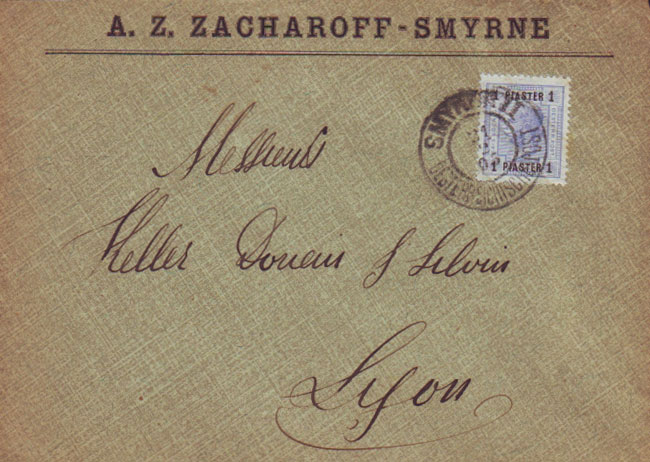 A. Z. ZACHAROFF - SMYRNE
1 PIASTER 1
1 PIASTER 1
SMYRNA II
Messieurs
Keller Douein & Silvin
Lyon